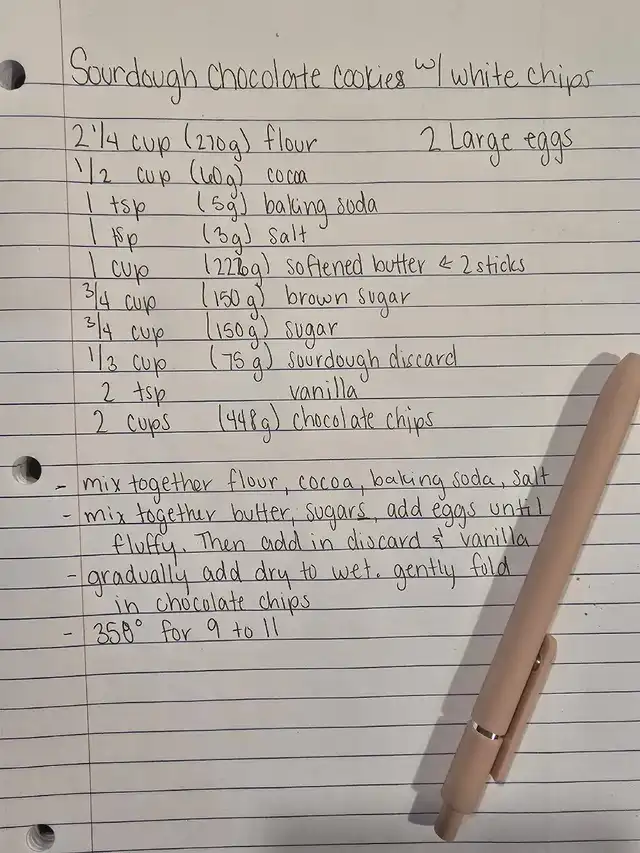 Sourdough chocolate cookies w/ white chips
2 1/4 cup (270g) flour 2 Large eggs
1/2 cup (60g) cocoa
1 tsp (5g) baking soda
1 tsp (3g) salt
1 cup (226g) softened butter ← 2 sticks
3/4 cup (150g) brown sugar
3/4 cup (150g) sugar
1/3 cup (75g) sourdough discard
2 tsp vanilla
2 cups (448g) chocolate chips
- mix together flour, cocoa, baking soda, salt
- mix together butter, sugars, add eggs until
fluffy. Then add in discard & vanilla
- gradually add dry to wet. gently fold
in chocolate chips
- 350° for 9 to 11